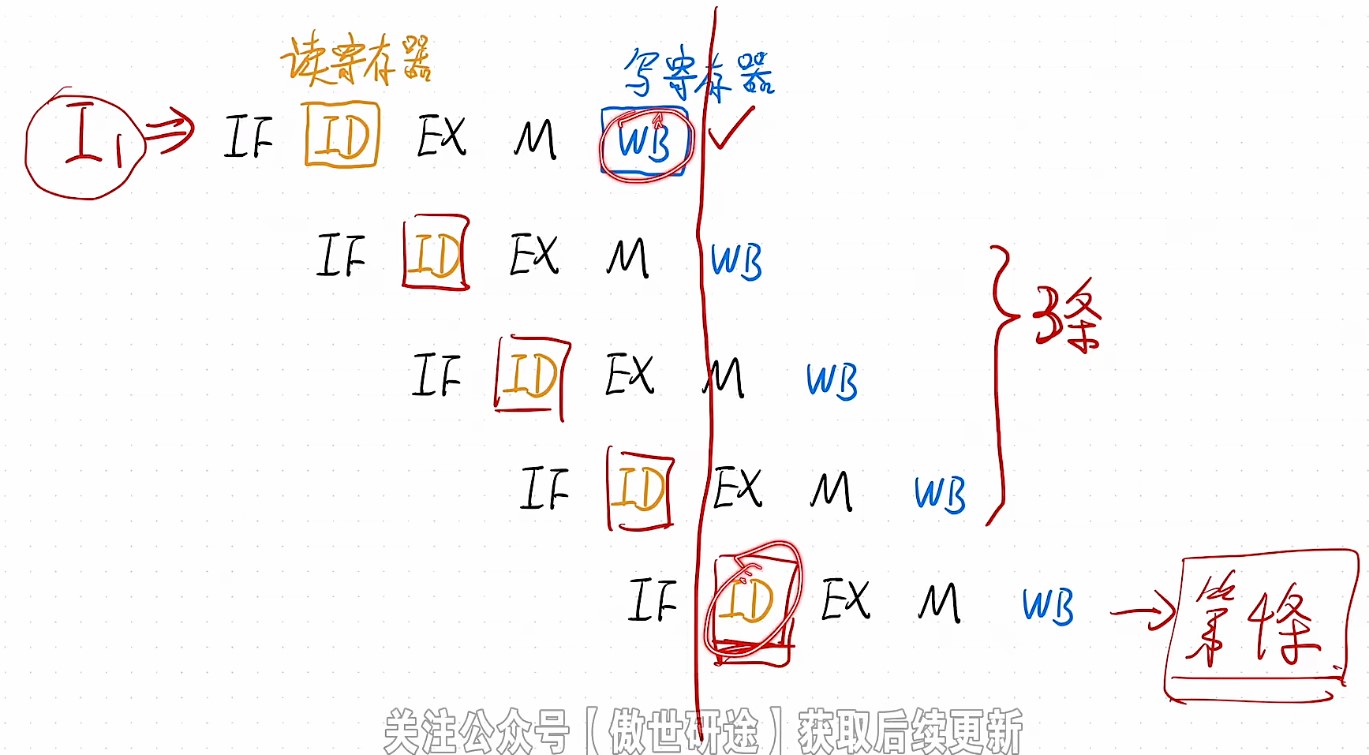 读寄存器 写寄存器
I₁ ⇒ IF ID EX M WB ✓
IF ID EX M WB
3条
IF ID EX M WB
IF ID EX M WB
IF ID EX M WB → 第4条
关注公众号【傲世研途】获取后续更新